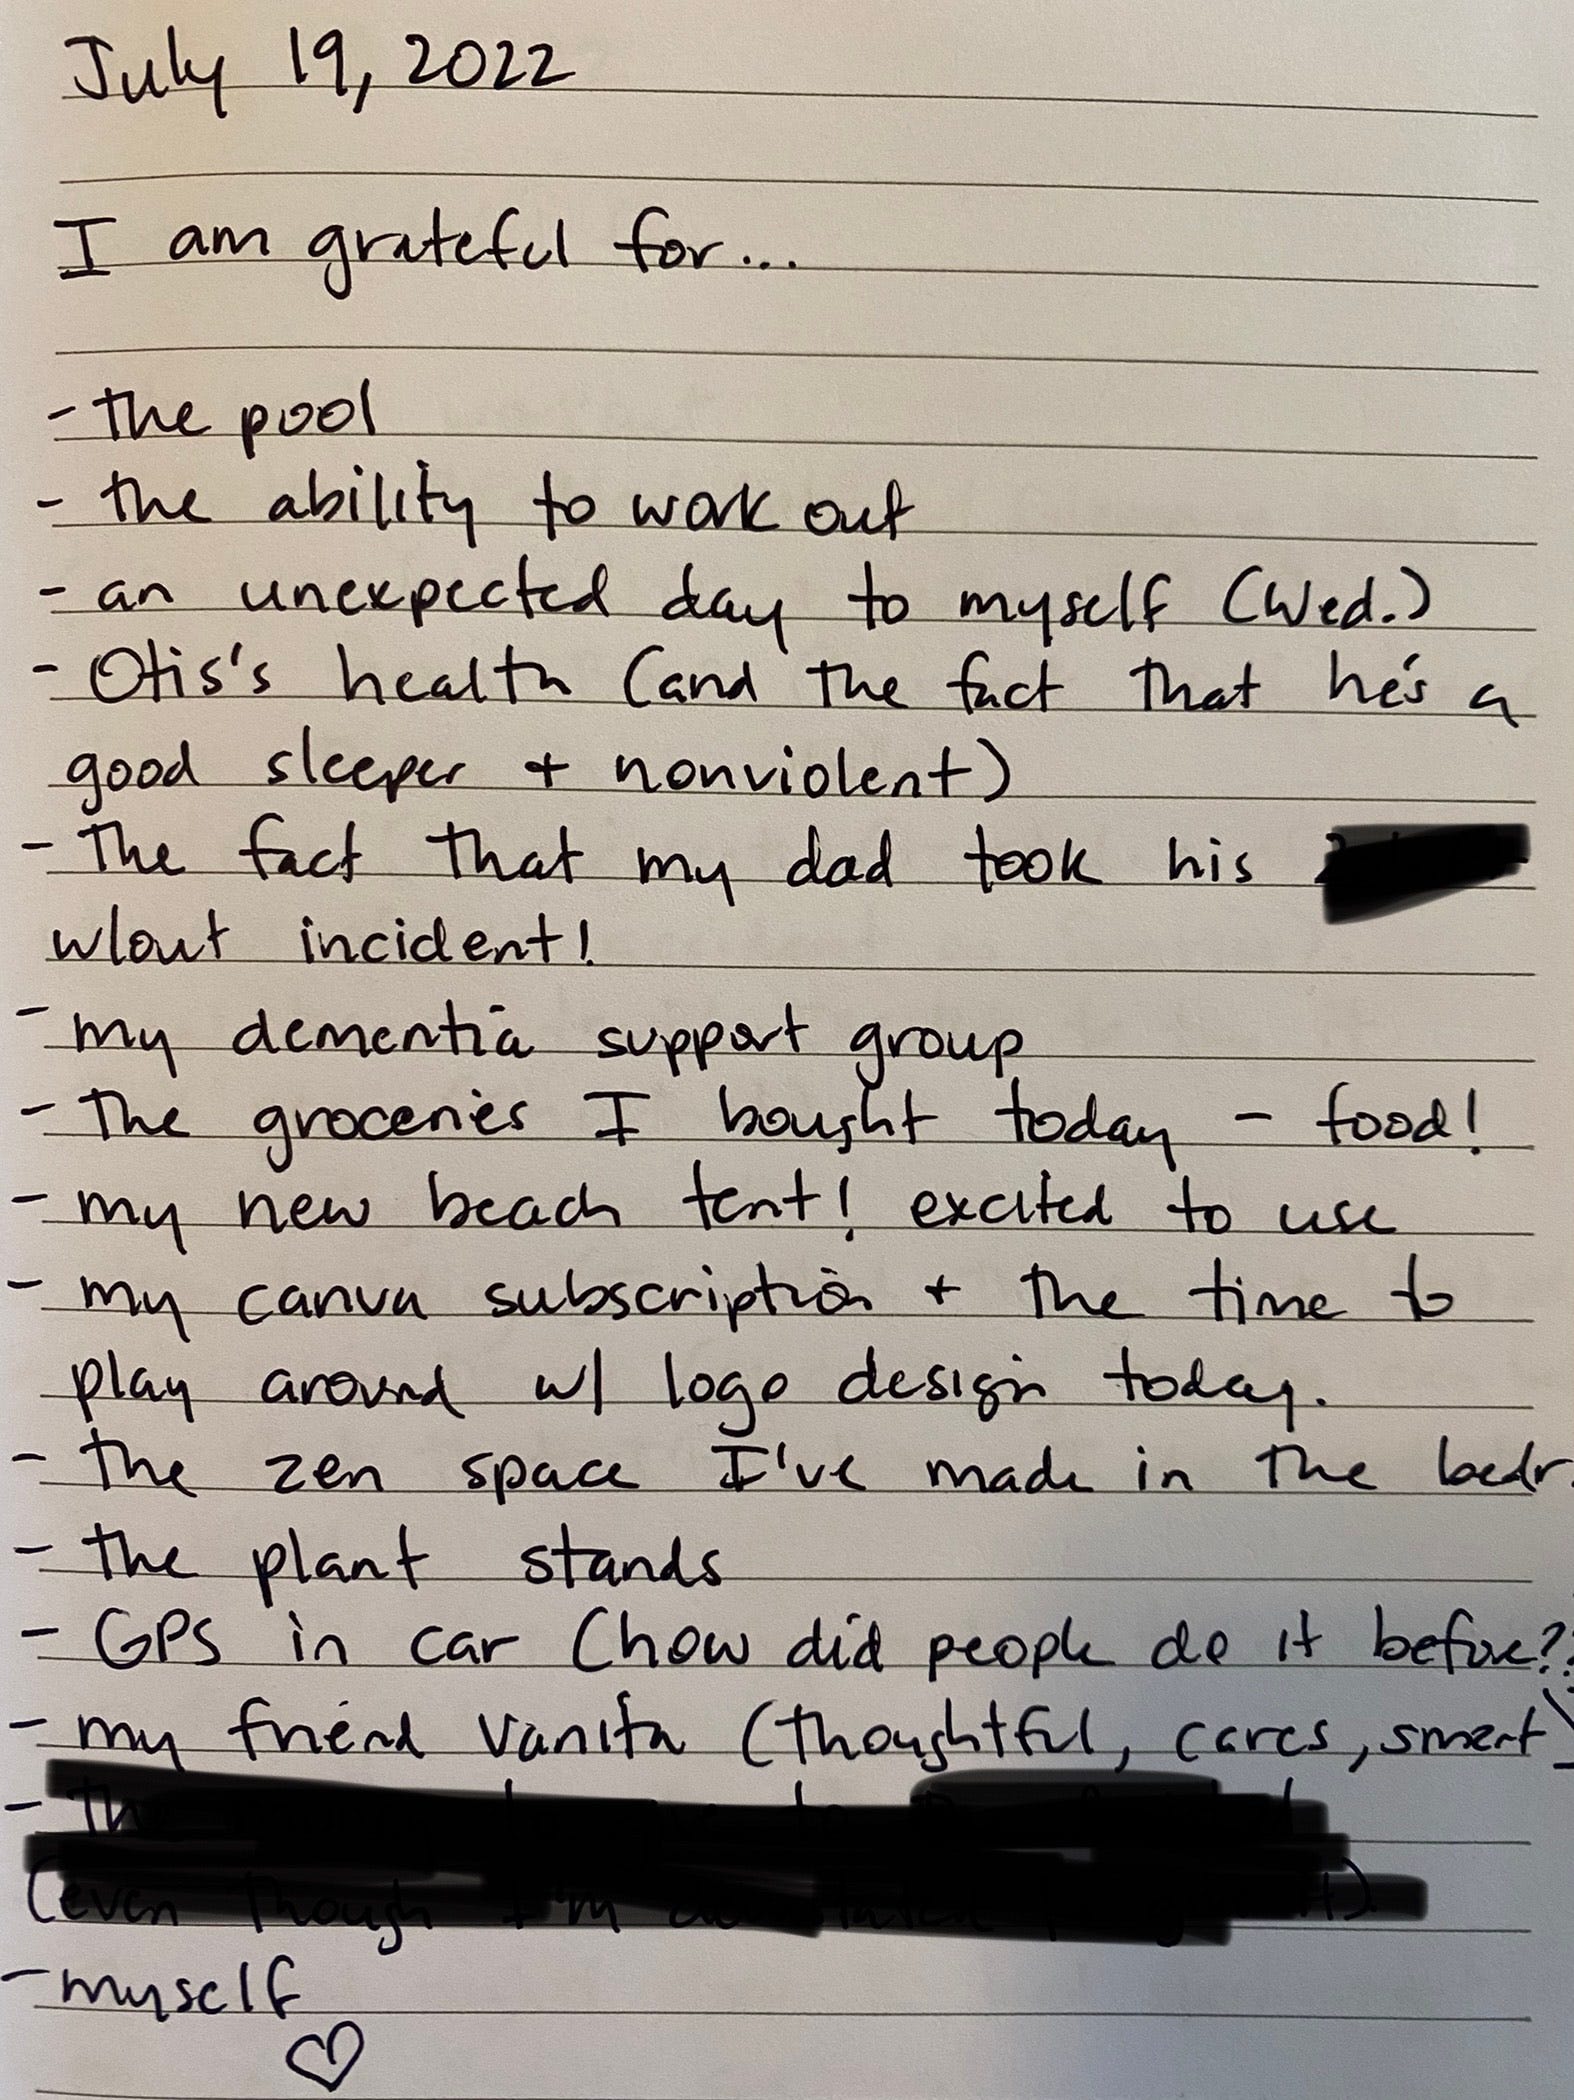 July 19, 2022
I am grateful for...
- the pool
- the ability to work out
- an unexpected day to myself (Wed.)
- Otis's health (and the fact that he's a
good sleeper + nonviolent)
- the fact that my dad took his
w/out incident!
- my dementia support group
- the groceries I bought today - food!
- my new beach tent! excited to use
- my canva subscription + the time to
play around w/ logo design today.
- the zen space I've made in the bedr.
- the plant stands
- GPS in car (how did people do it before??
- my friend Vanita (thoughtful, cares, smart)
- the
(even though I'm
- myself